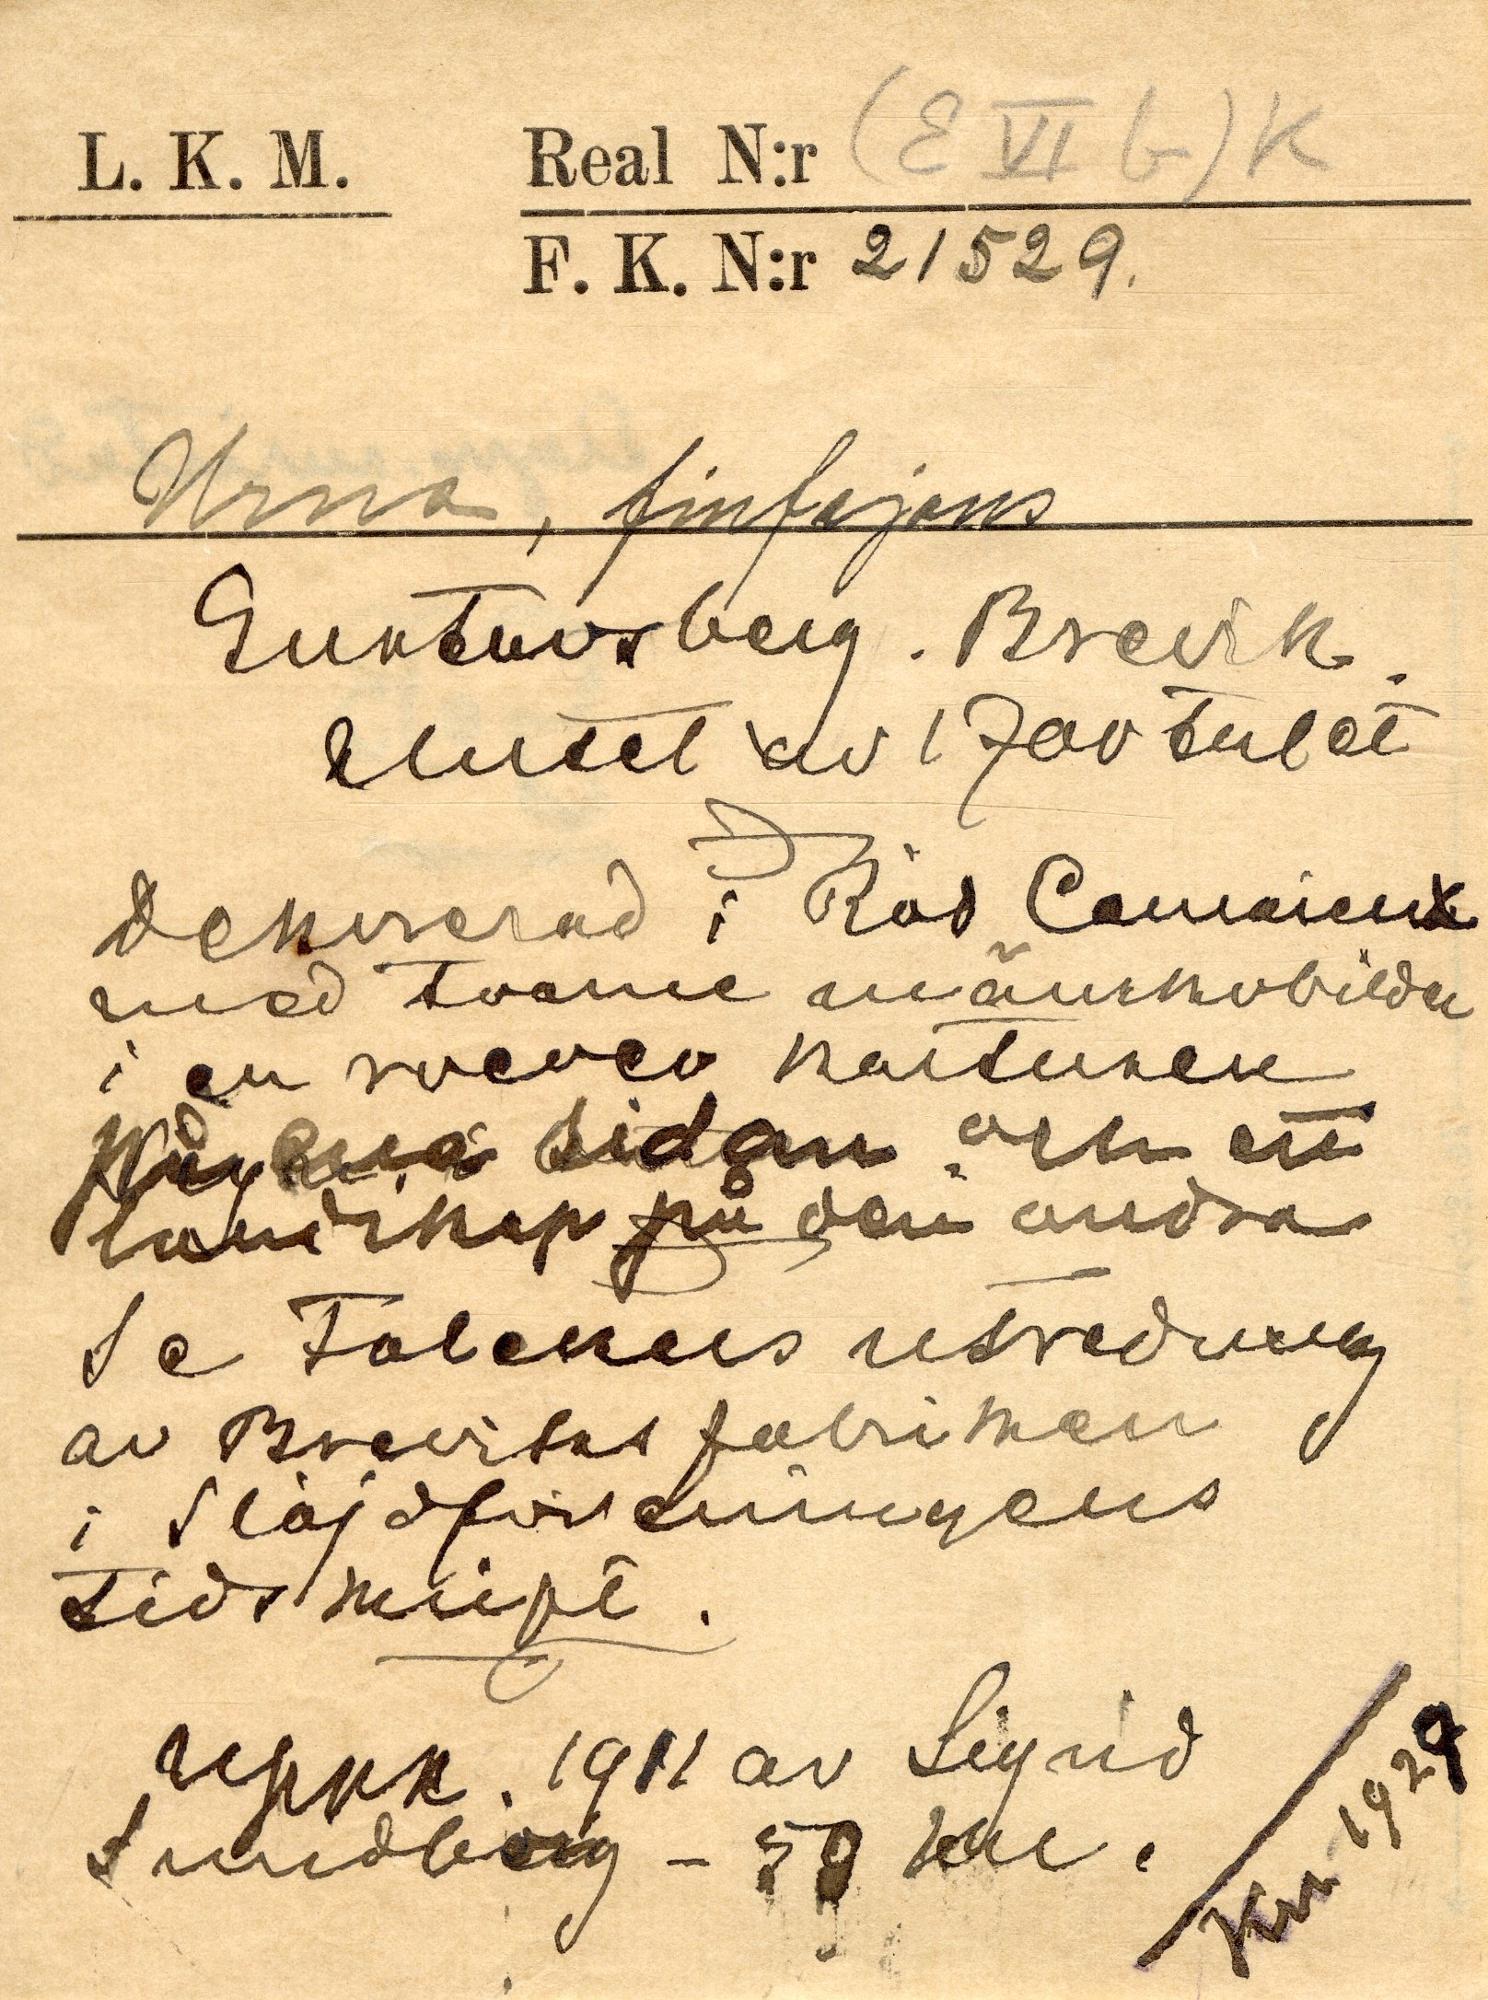 L. K. M.
Real N:r (E VI b) K
F. K. N:r 21529.
Urna, finfajans
Gustavsberg. Brevik.
slutet av 1700 talet
Dekorerad i Röd Camaieux
med tvenne mänskobilder
i en rococo kartusch
på ena sidan och ett
landskap på den andra
Se Falcks utredning
av Breviks fabriken
i Slöjdföreningens
tidskrift.
uppk. 1911 av Sigrid
Lundberg - 50 kr.
1929